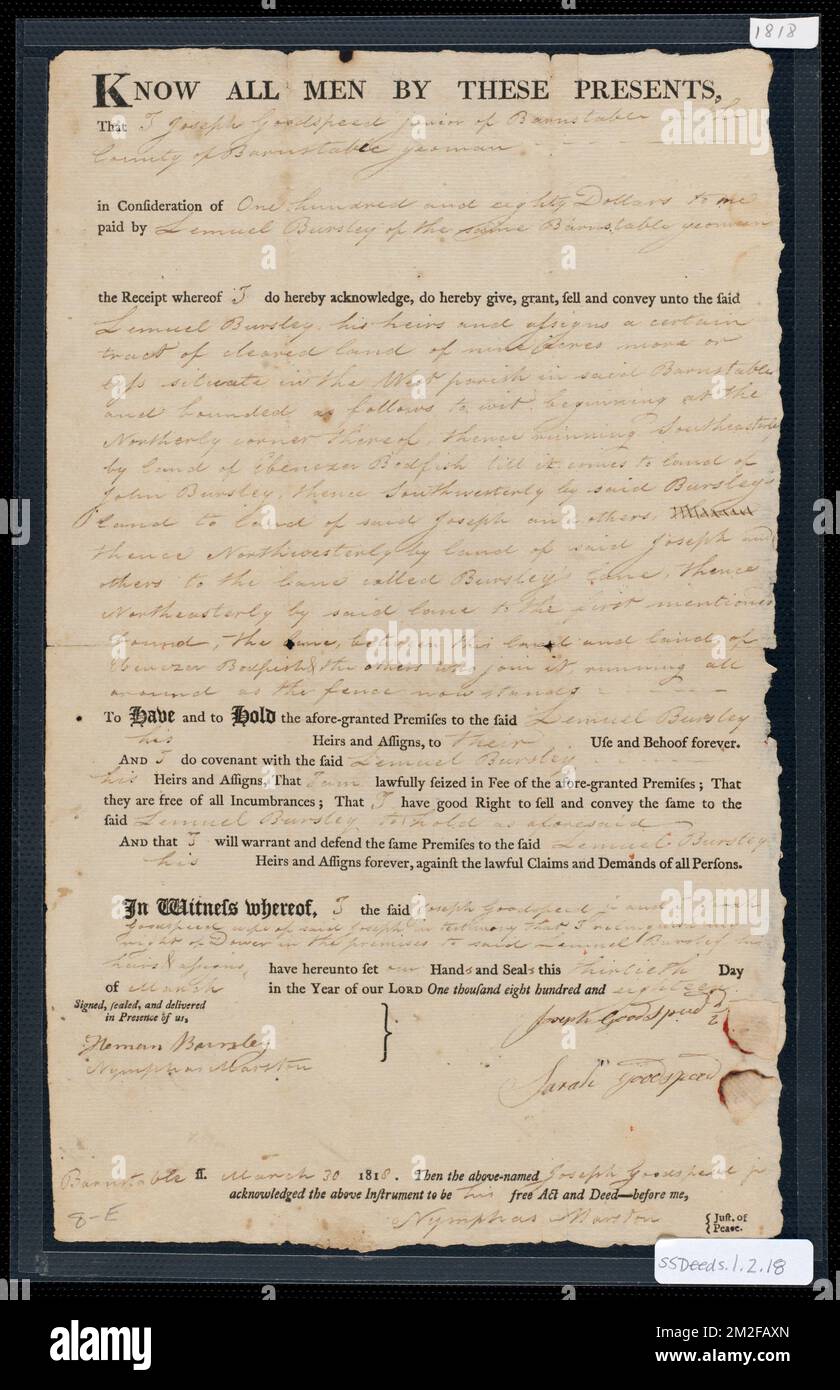 1818
KNOW ALL MEN BY THESE PRESENTS,
That I Joseph Goodspeed junior of Barnstable in the
County of Barnstable yeoman
in Conſideration of One hundred and eighty Dollars to me
paid by Lemuel Bursley of the same Barnstable yeoman
the Receipt whereof I do hereby acknowledge, do hereby give, grant, ſell and convey unto the ſaid
Lemuel Bursley his heirs and aſsigns a certain
tract of cleared land of nine acres more or
leſs situate in the West parish in said Barnstable
and bounded as follows to wit. beginning at the
Northerly corner thereof, thence running Southeasterly
by land of Ebenezer Bodfish till it comes to land of
John Bursley, thence Southwesterly by said Bursley's
land to land of said Joseph and others,
thence Northwesterly by land of said Joseph and
others to the lane called Bursley's lane, thence
Northeasterly by said lane to the first mentioned
bound, the line, betwen this land and land of
Ebenezer Bodfish & the others who join it, running all
around as the fence now stands
To Have and to Hold the afore-granted Premiſes to the ſaid Lemuel Bursley
his Heirs and Aſſigns, to their Uſe and Behoof forever.
AND I do covenant with the ſaid Lemuel Bursley
his Heirs and Aſſigns, That I am lawfully ſeized in Fee of the afore-granted Premiſes; That
they are free of all Incumbrances; That I have good Right to ſell and convey the ſame to the
ſaid Lemuel Bursley to hold as aforesaid
AND that I will warrant and defend the ſame Premiſes to the ſaid Lemuel Bursley
his Heirs and Aſſigns forever, againſt the lawful Claims and Demands of all Perſons.
In Witneſs whereof, I the ſaid Joseph Goodspeed jr and I Sarah
Goodspeed wife of said Joseph, in testimony that I relinquish my
right of Dower in the premises to said Lemuel Bursley his
heirs & assigns, have hereunto ſet our Hands and Seals this thirtieth Day
of March in the Year of our LORD One thouſand eight hundred and eighteen.
Signed, ſealed, and delivered
in Preſence of us,
Joseph Goodspeed Jr
Heman Bursley
Nymphas Marston
Sarah Goodspeed
Barnstable ſſ. March 30 1818. Then the above-named Joseph Goodspeed jr
acknowledged the above Inſtrument to be his free Act and Deed—before me,
Nymphas Marston {Juſt. of
Peace.
8-E
SSDeeds.1.2.18
alamy
Image ID: 2M2FAXN
www.alamy.com